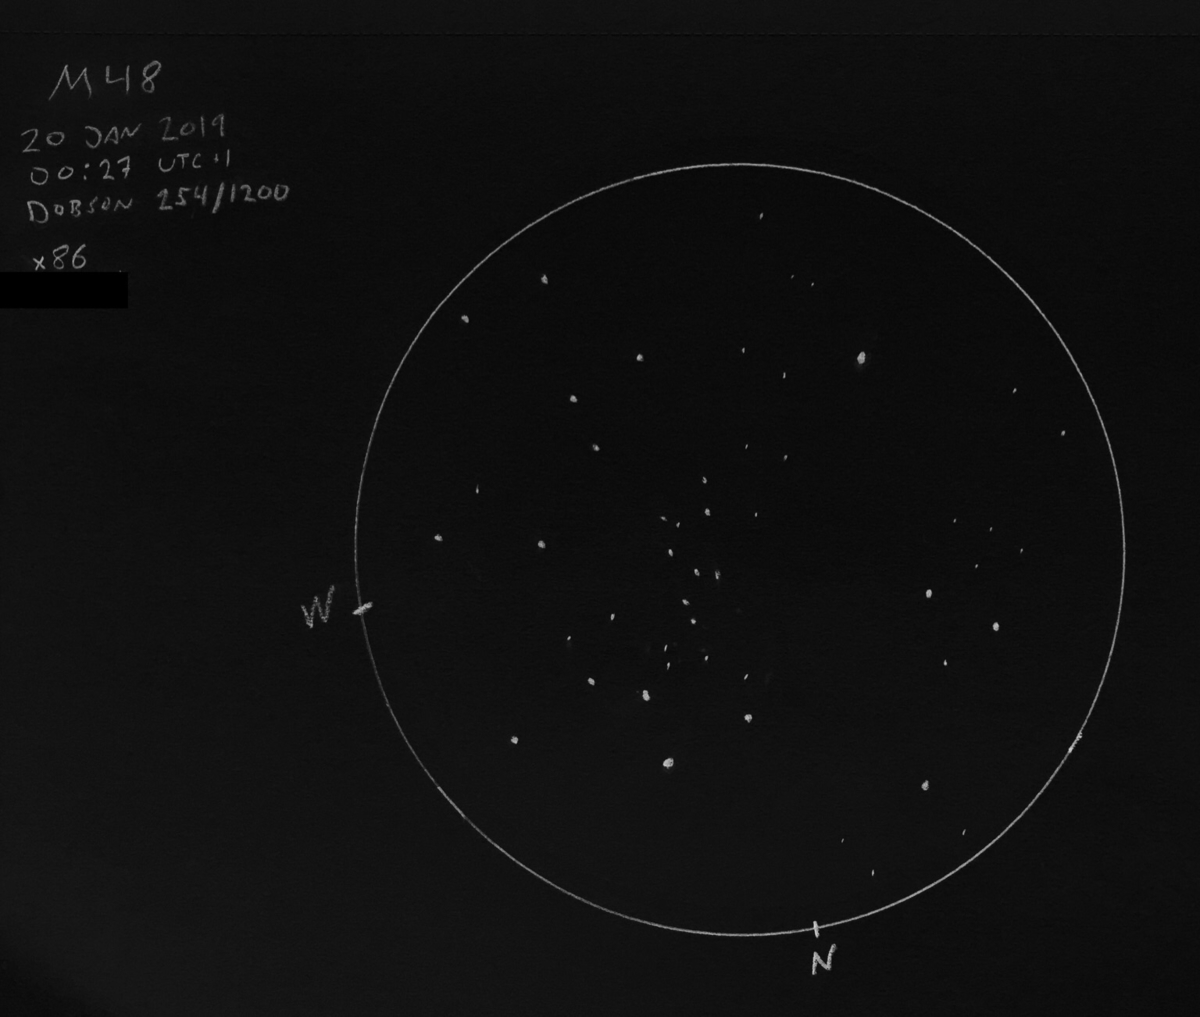 M48
20 JAN 2019
00:27 UTC+1
DOBSON 254/1200
x86
W
N